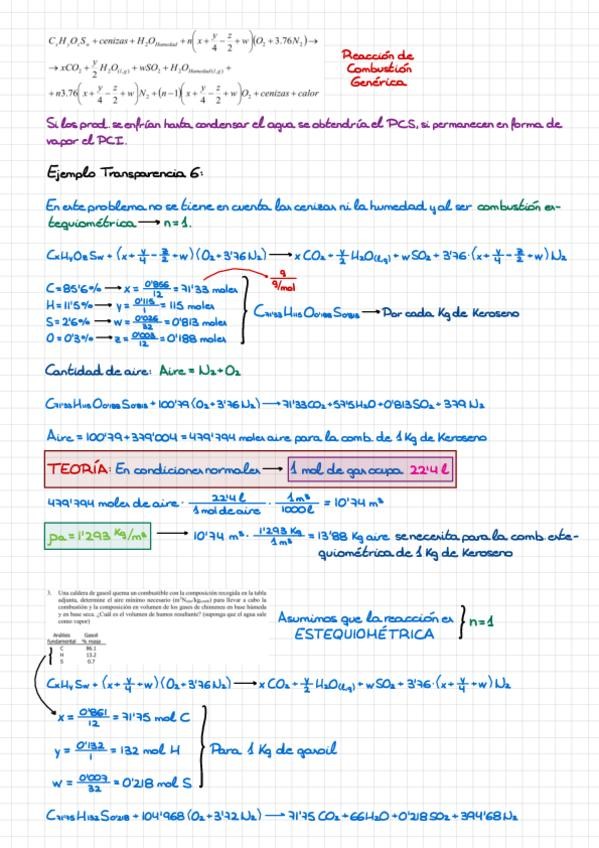 CxHyOzSw + cenizas + H2OHumedad + n(x + y/4 − z/2 + w)(O2 + 3.76N2) →
→ xCO2 + y/2 H2O(l,g) + wSO2 + H2OHumedad(l,g) +
+ n3.76(x + y/4 − z/2 + w)N2 + (n−1)(x + y/4 − z/2 + w)O2 + cenizas + calor
Reacción de
Combustión
Genérica
Si los prod. se enfrían hasta condensar el agua se obtendría el PCS, si permanecen en forma de
vapor el PCI.
Ejemplo Transparencia 6:
En este problema no se tiene en cuenta las cenizas ni la humedad y al ser combustión es-
tequiométrica → n=1.
CxHyOzSw + (x + y/4 − z/2 + w)(O2 + 3'76N2) → xCO2 + y/2 H2O(l,g) + wSO2 + 3'76·(x + y/4 − z/2 + w)N2
C=85'6% → x = 0'856/12 = 71'33 moles
g
g/mol
H=11'5% → y = 0'115/1 = 115 moles
S=2'6% → w = 0'026/32 = 0'813 moles
O=0'3% → z = 0'003/12 = 0'188 moles
C71'33 H115 O0'188 S0'813 → Por cada Kg de Keroseno
Cantidad de aire: Aire = N2 + O2
C71'33 H115 O0'188 S0'813 + 100'79 (O2 + 3'76 N2) → 71'33CO2 + 57'5H2O + 0'813SO2 + 379 N2
Aire = 100'79 + 379'004 = 479'794 moles aire para la comb. de 1 Kg de Keroseno
TEORÍA: En condiciones normales → 1 mol de gas ocupa 22'4 l
479'794 moles de aire · 22'4 l/1 mol de aire · 1 m³/1000 l = 10'74 m³
ρa = 1'293 Kg/m³ → 10'74 m³ · 1'293 Kg/1 m³ = 13'88 Kg aire se necesita para la comb. este-
quiométrica de 1 Kg de Keroseno
3. Una caldera de gasoil quema un combustible con la composición recogida en la tabla
adjunta, determine el aire mínimo necesario para llevar a cabo la
combustión y la composición en volumen de los gases de chimenea en base húmeda
y en base seca. ¿Cuál es el volumen de humos resultante? (suponga que el agua sale
como vapor)
Análisis Gasoil
fundamental % masa
C 86.1
H 13.2
S 0.7
Asumimos que la reacción es
ESTEQUIOMÉTRICA
n=1
CxHySw + (x + y/4 + w)(O2 + 3'76N2) → xCO2 + y/2 H2O(l,g) + wSO2 + 3'76·(x + y/4 + w)N2
x = 0'861/12 = 71'75 mol C
y = 0'132/1 = 132 mol H
Para 1 Kg de gasoil
w = 0'007/32 = 0'218 mol S
C71'75 H132 S0'218 + 104'968 (O2 + 3'72 N2) → 71'75 CO2 + 66H2O + 0'218 SO2 + 394'68N2